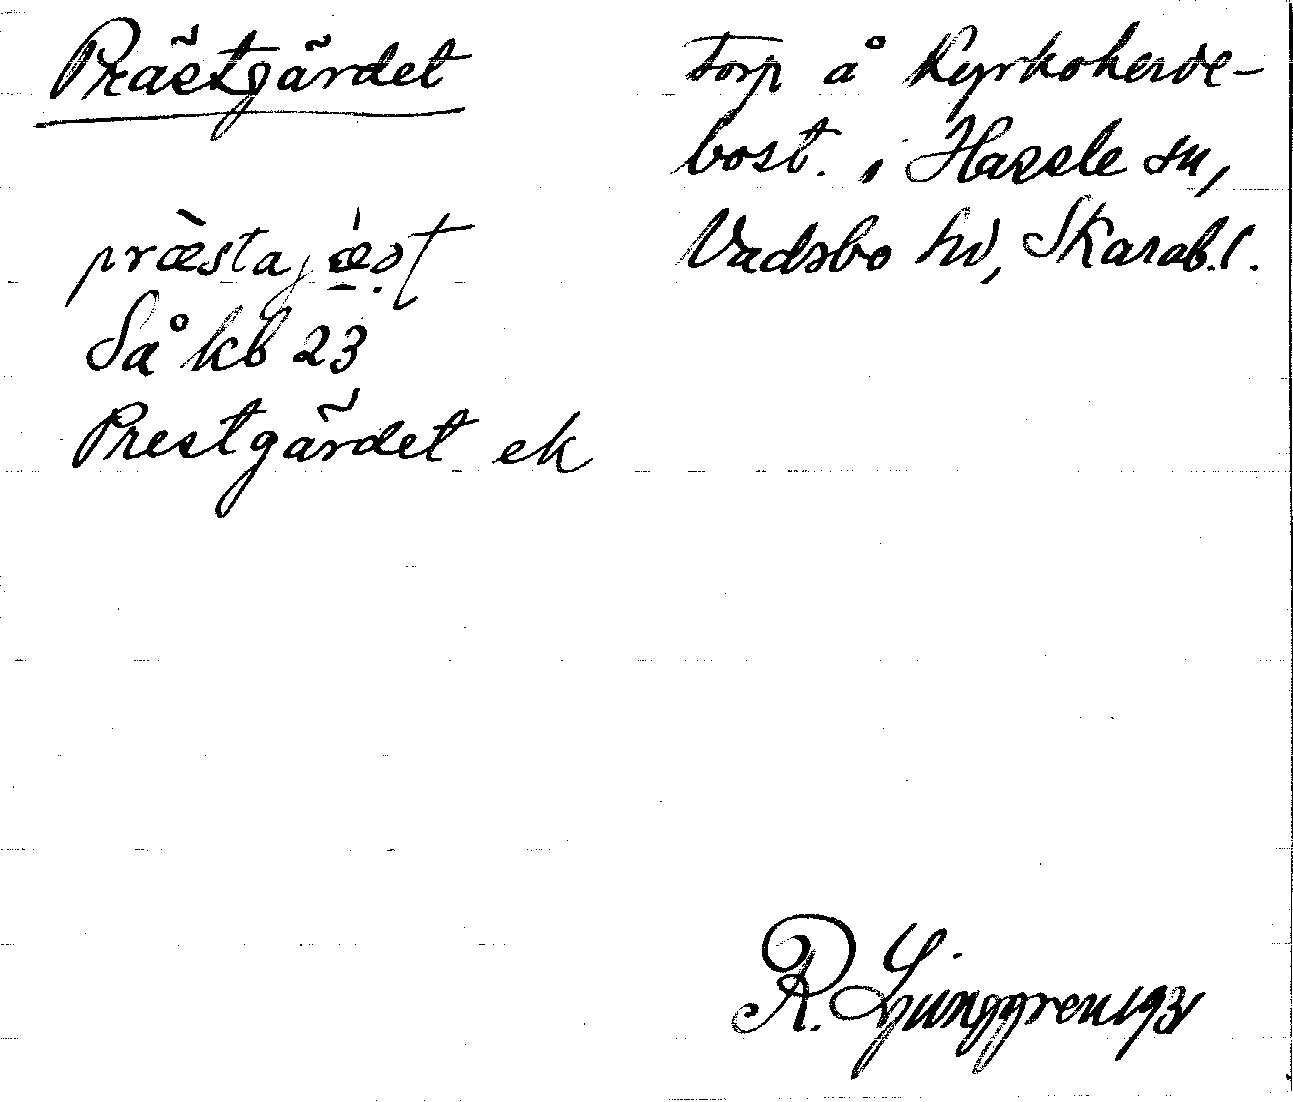 Prästgärdet
præstajæṣt
Så kb 23
Prestgärdet ek
Torp å Kyrkoherde-
bost. i Hassle sn,
Vadsbo hd, Skarab.l.
R. Ljunggren 1931